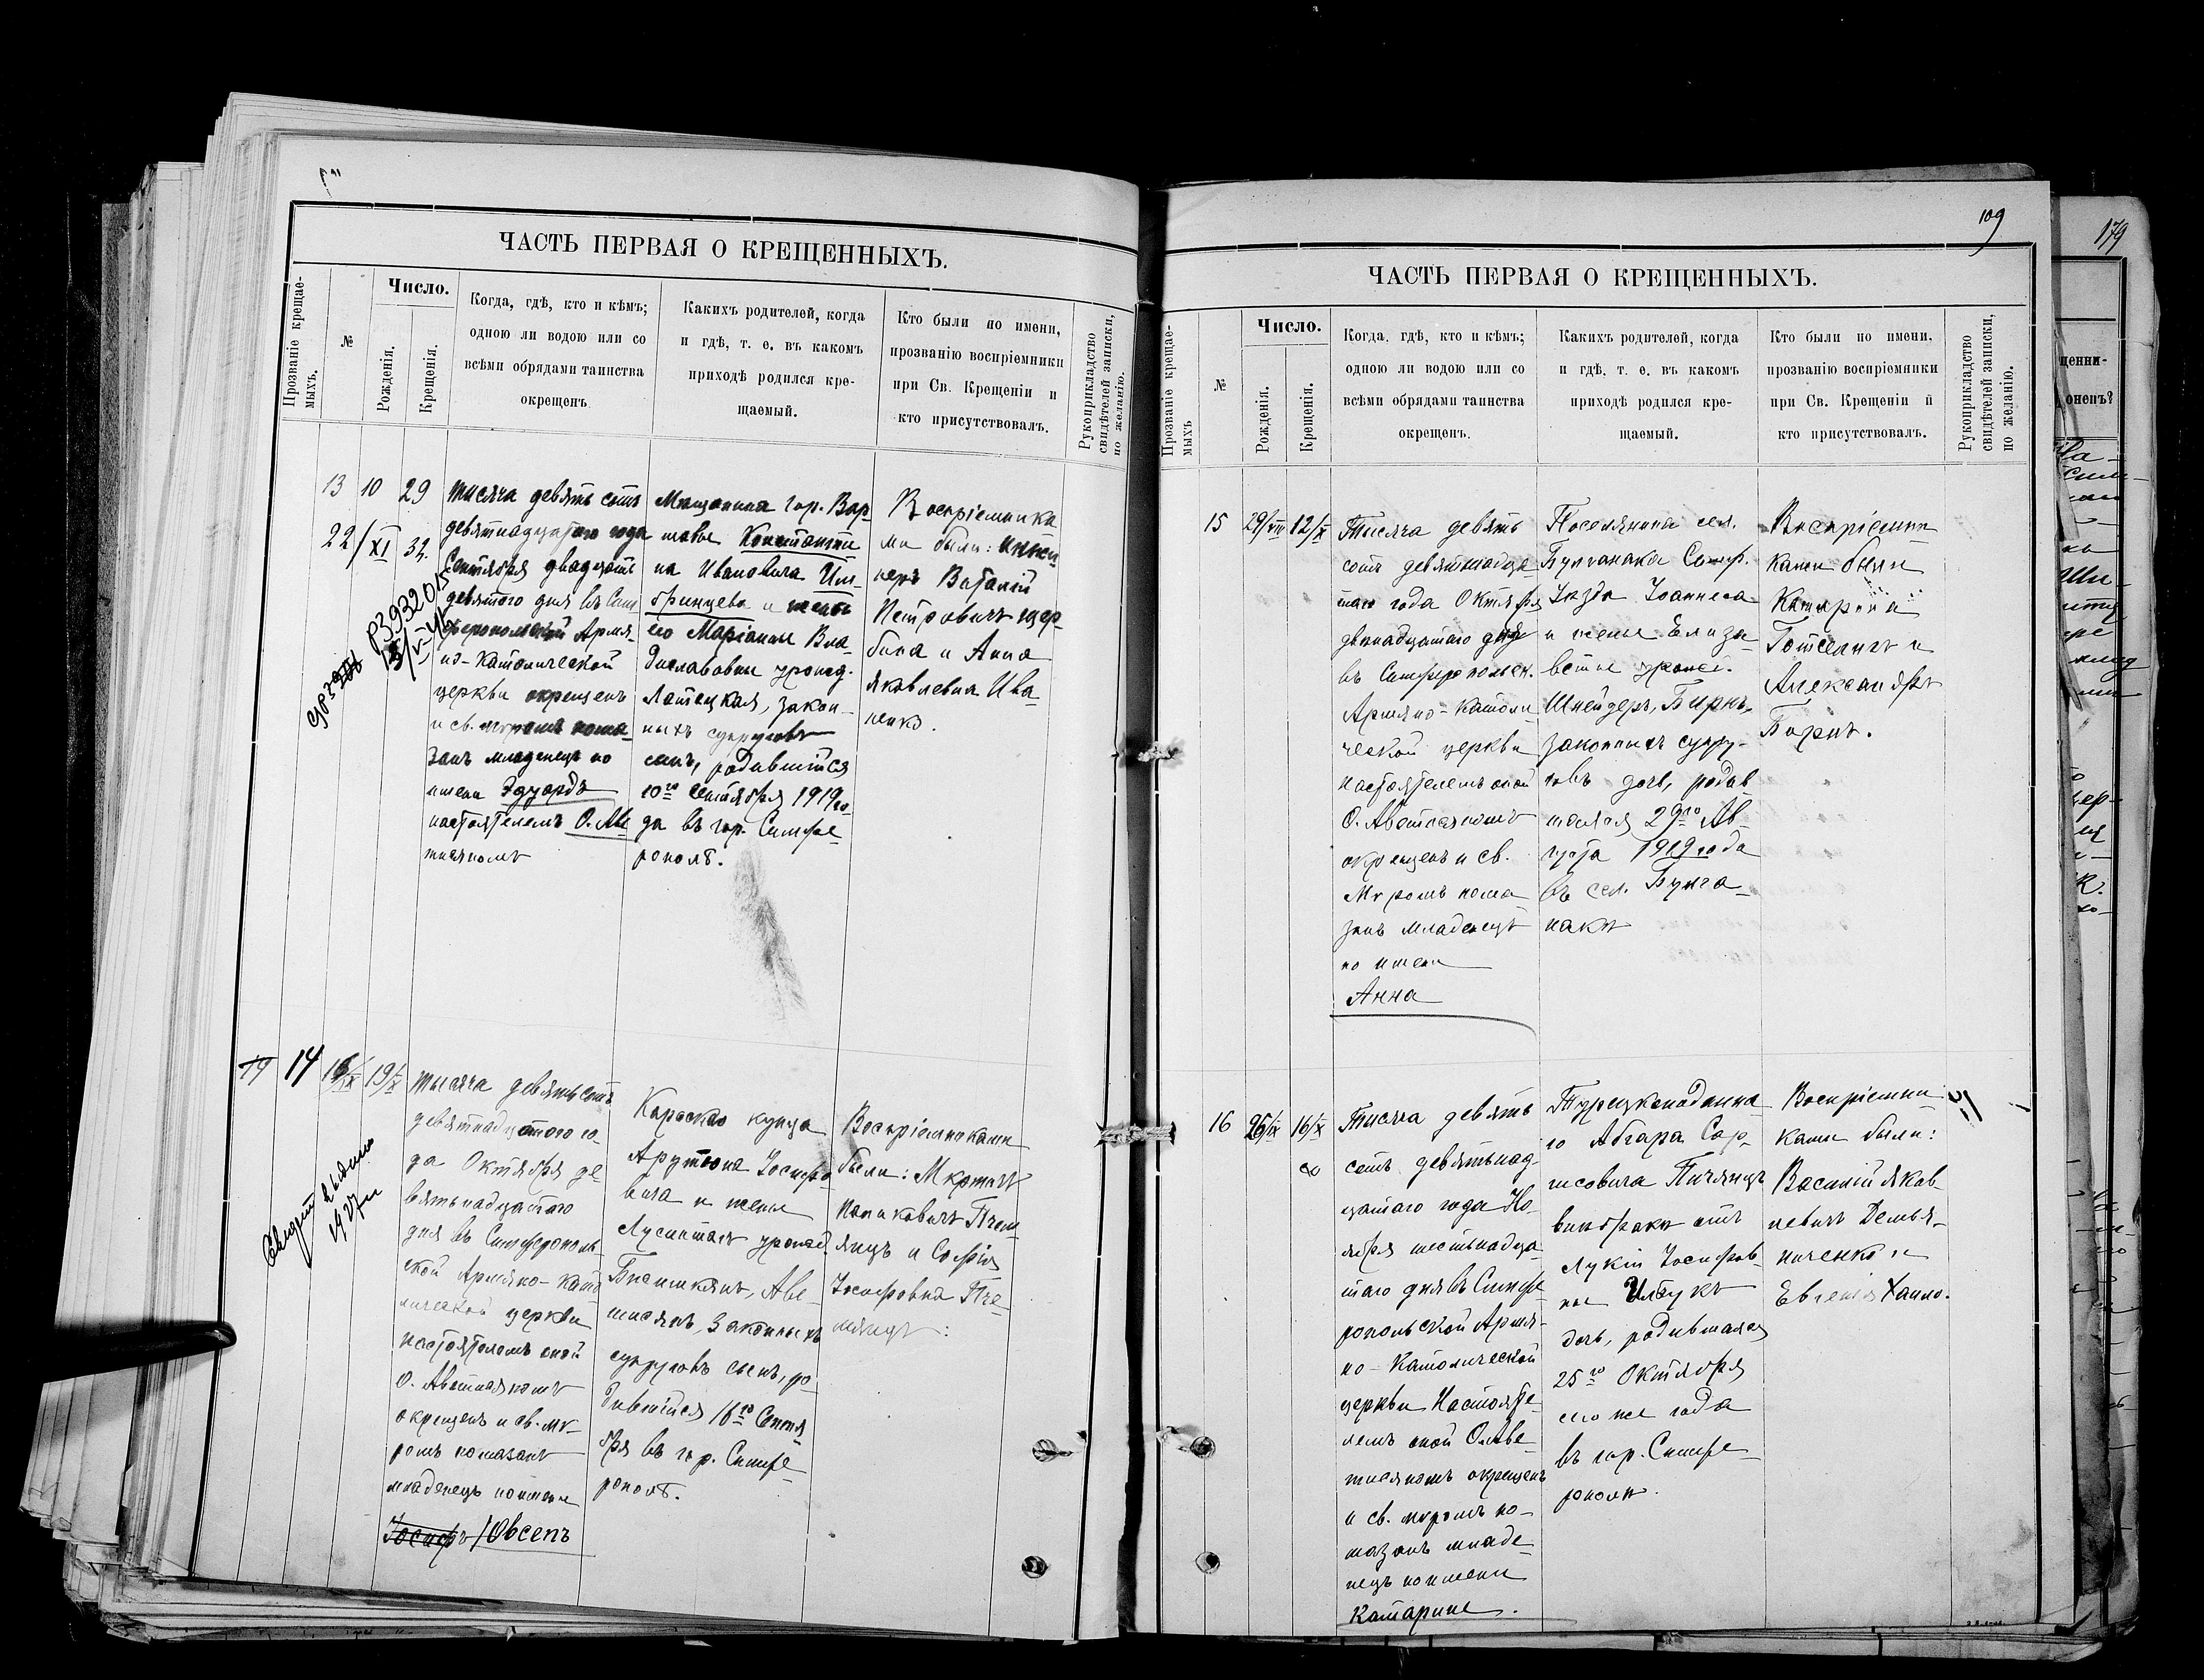 ЧАСТЬ ПЕРВАЯ О КРЕЩЕННЫХЪ.
Прозваніе крещае-
мыхъ.
№
Число.
Рожденія.
Крещенія.
Когда, гдѣ, кто и кѣмъ;
одною ли водою или со
всѣми обрядами таинства
окрещенъ.
Какихъ родителей, когда
и гдѣ, т. е. въ какомъ
приходѣ родился кре-
щаемый.
Кто были по имени,
прозванію воспріемники
при Св. Крещеніи и
кто присутствовалъ.
Рукоприкладство
свидѣтелей записки,
по желанію.
13
10
29
22/XI
32.
тысяча девять сотъ
девятнадцатого года
Сентября двадцать
девятого дня въ Сим
феропольской Армя-
но-Католической
церкви окрещенъ
и св. мѵромъ пома-
занъ младенецъ по
имени Эдуардъ
настоятелемъ О. Аве
тисяномъ
Мѣщанина гор. Вар-
шавы Константи
на Ивановича
и жены
его Маріанны Вла-
диславовны урожд.
закон-
ныхъ супруговъ
сынъ, родившійся
10го Сентября 1919 го-
да въ гор. Симфе-
рополѣ.
Воспріемника
ми были: инже
неръ Виталій
Петровичъ Щер-
бина и Анна
Яковлевна Ива-
ненко.
19
14
16/IX
19/X
тысяча девять сотъ
девятнадцатого го-
да Октября де
вятьнадцатого
дня въ Симферополь-
ской Армяно-Като
лической церкви
настоятелемъ оной
О. Аветисяномъ
окрещенъ и св. мѵ-
ромъ помазанъ
младенецъ по имени
Іосифъ / Овсепъ
Карскаго купца
Арутюна Іосифо
вича и жены
урожд.
Аве-
тисянъ, законныхъ
супруговъ сынъ, ро-
дившійся 16го Сентя
бря въ гор. Симфе-
рополѣ.
Воспріемниками
были: Мкртичъ
и Софія
Іосифовна
1927
109
ЧАСТЬ ПЕРВАЯ О КРЕЩЕННЫХЪ.
Прозваніе крещае-
мыхъ
№
Число.
Рожденія.
Крещенія.
Когда, гдѣ, кто и кѣмъ;
одною ли водою или со
всѣми обрядами таинства
окрещенъ.
Какихъ родителей, когда
и гдѣ, т. е. въ какомъ
приходѣ родился кре-
щаемый.
Кто были по имени,
прозванію воспріемники
при Св. Крещеніи и
кто присутствовалъ.
Рукоприкладство
свидѣтелей записки,
по желанію.
15
29/VIII
12/X
Тысяча девять
сотъ девятнадца
таго года Октября
двенадцатаго дня
въ Симферопольск.
Армяно-Католи
ческой церкви
настоятелемъ оной
О. Аветисяномъ
окрещенъ и св.
Мѵромъ пома
занъ младенецъ
по имени
Анна
Поселянина сел.
Булганака Симф.
Уѣзда Іоаннеса
и жены Елиза-
веты урожд.
Шнейдеръ, Биркъ,
законныхъ супру-
говъ дочь, родив
шаяся 29го Ав-
густа 1919 года
въ сел. Булга-
накѣ
Воспріемни
ками были
Катарина
и
Александръ
16
25/IX
16/X
Тысяча девять
сотъ девятьнад-
цатаго года Но-
ября шестьнадца-
таго дня въ Симфе
ропольской Армя-
но-Католической
церкви Настояте-
лемъ оной О. Аве-
тисяномъ окрещенъ
и св. мѵромъ по-
мазанъ младе-
нецъ по имени
Катарине.
Турецкоподанна
го Абгара Сар-
кисовича
внѣ брака отъ
Лукіи Іосифов-
ны
дочь, родившаяся
25го Октября
сего же года
въ гор. Симфе-
рополѣ.
Воспріемни
ками были:
Василій Яков-
левичъ Демья-
ненко и
Евгенія
179